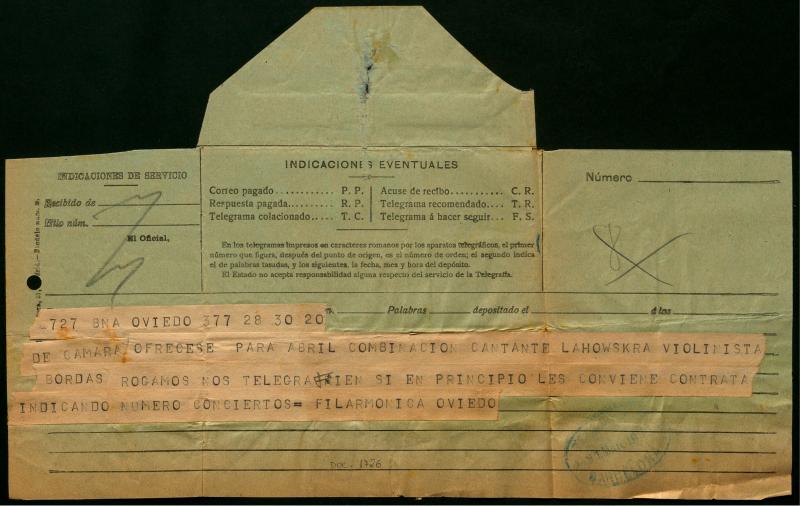 INDICACIONES DE SERVICIO
Recibido de
Hilo núm.
El Oficial,
INDICACIONES EVENTUALES
Correo pagado ........... P. P.
Respuesta pagada ........ R. P.
Telegrama colacionado..... T. C.
Acuse de recibo............ C. R.
Telegrama recomendado.... T. R.
Telegrama á hacer seguir... F. S.
En los telegramas impresos en caracteres romanos por los aparatos telegráficos, el primer
número que figura, después del punto de origen, es el número de orden; el segundo indica
el de palabras tasadas, y los siguientes, la fecha, mes y hora del depósito.
El Estado no acepta responsabilidad alguna respecto del servicio de la Telegrafía.
Número
8
Palabras depositado el á las
727 BNA OVIEDO 377 28 30 20
DE CAMARA OFRECESE PARA ABRIL COMBINACION CANTANTE LAHOWSKRA VIOLINISTA
BORDAS ROGAMOS NOS TELEGRAFIEN SI EN PRINCIPIO LES CONVIENE CONTRATA
INDICANDO NUMERO CONCIERTOS= FILARMONICA OVIEDO
DOC. 1726